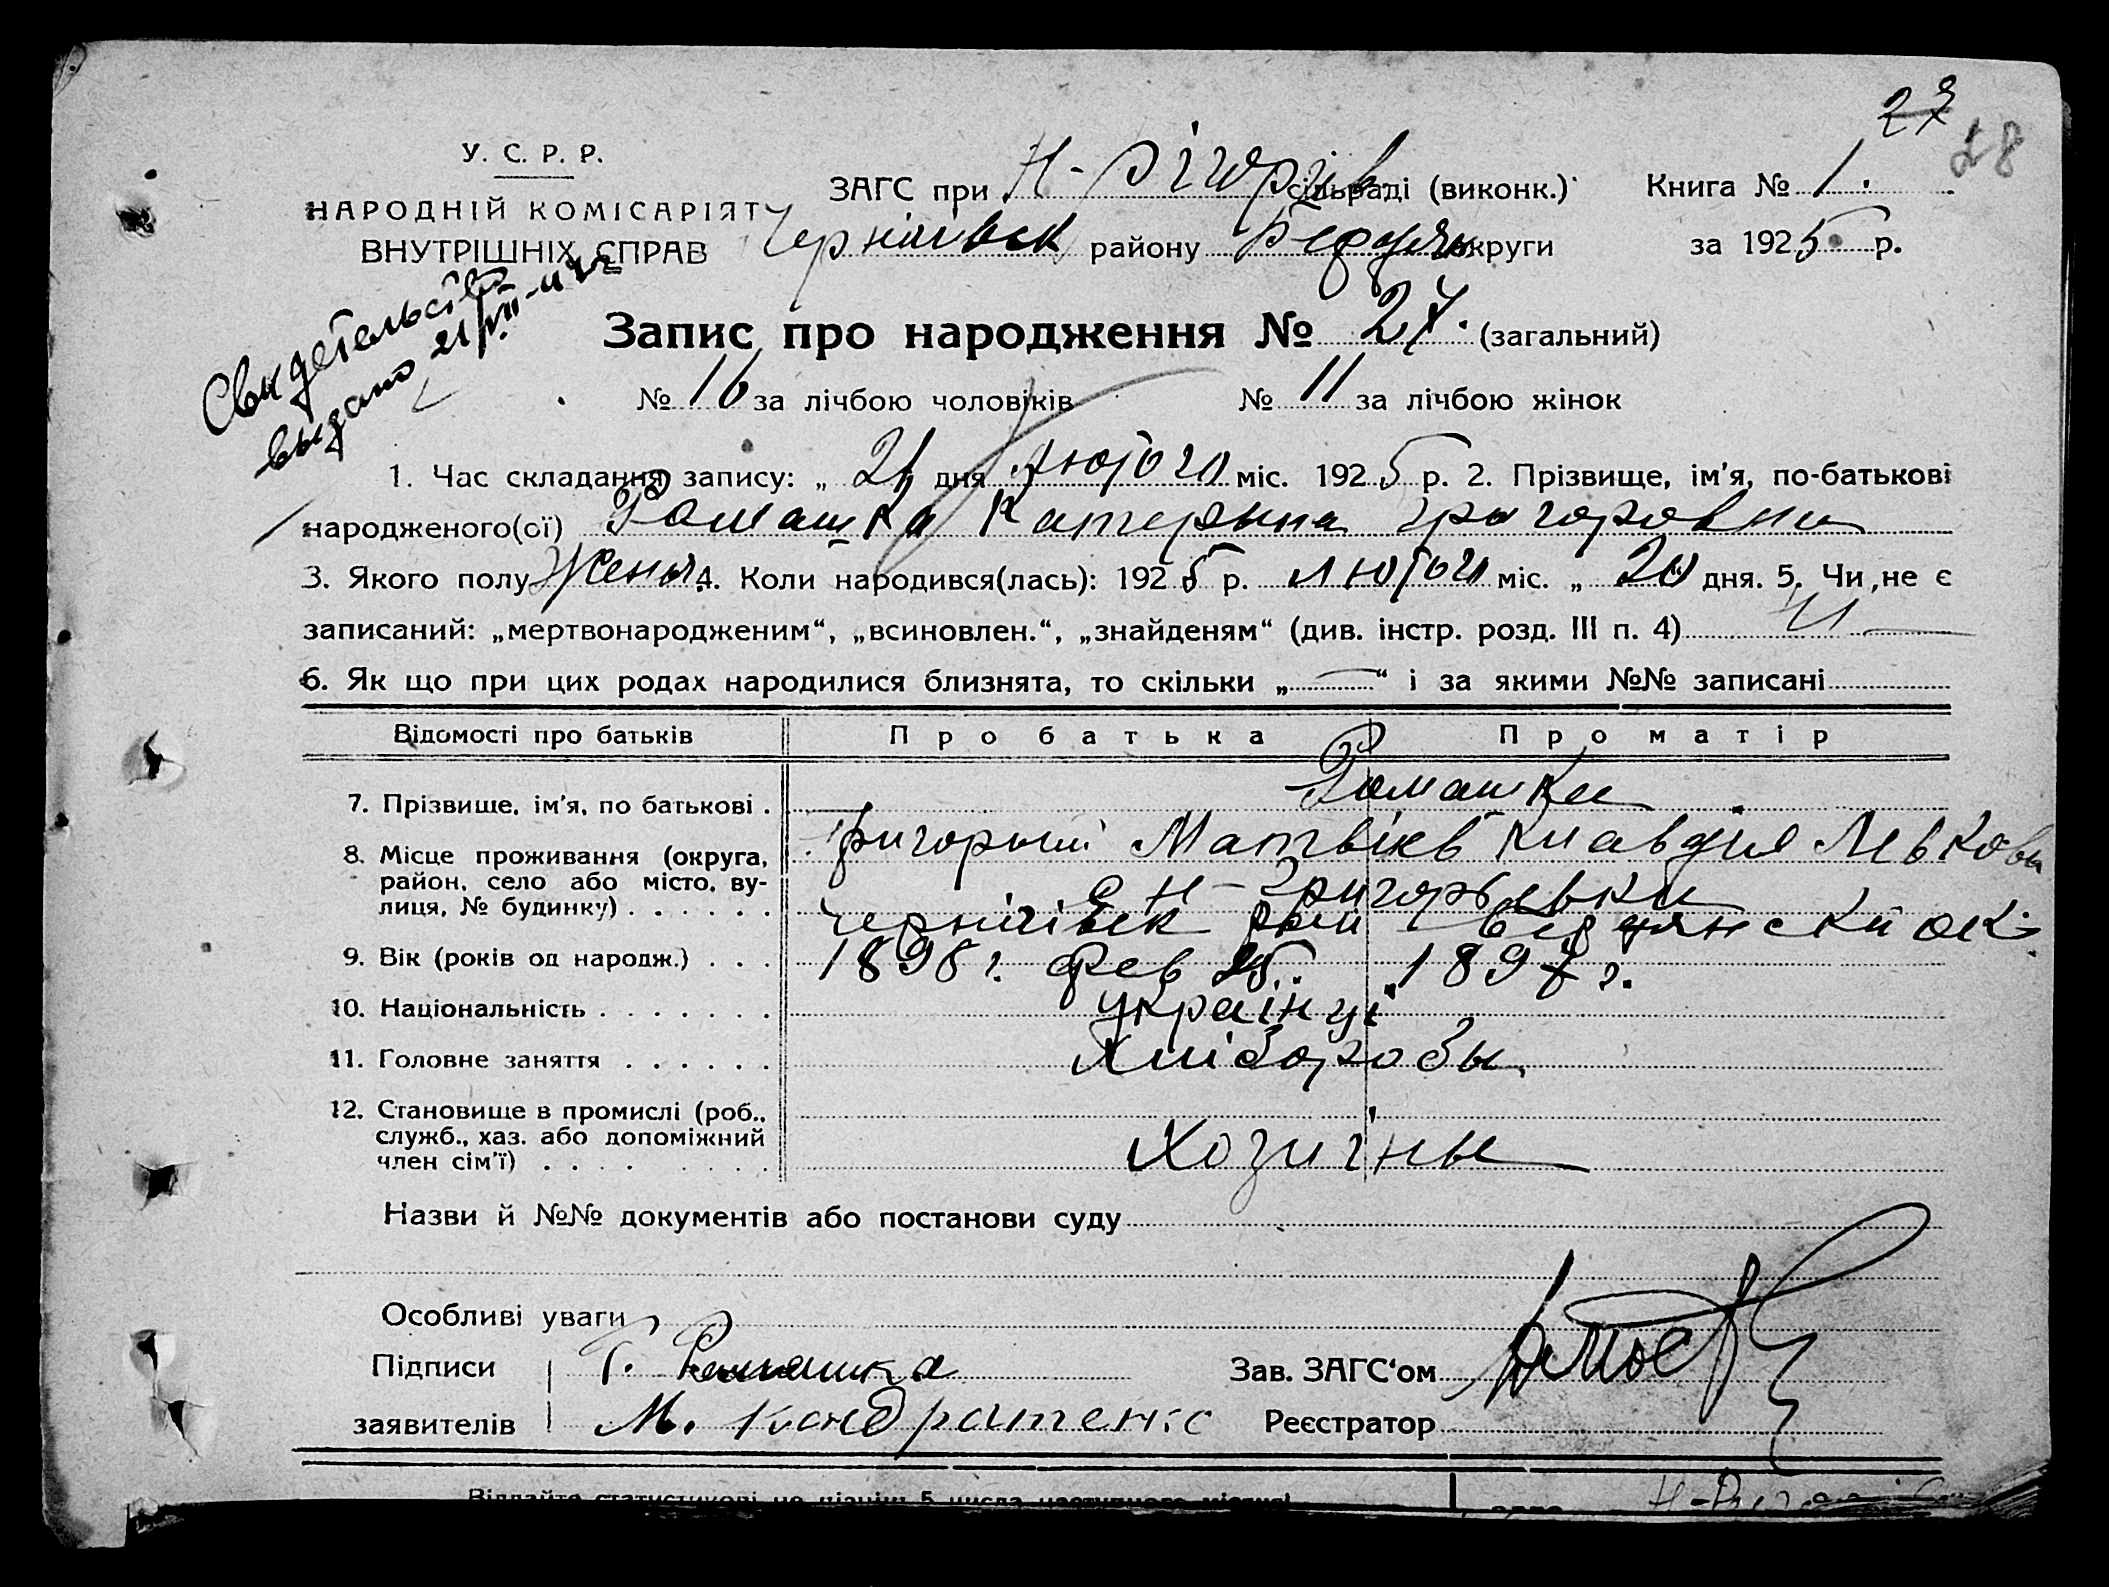 27
28
У. С. Р. Р.
НАРОДНІЙ КОМІСАРІЯТ
ВНУТРІШНІХ СПРАВ
ЗАГС при Н- сільраді (виконк.)
Книга № 1.
Чернігівськ району Бердян округи
за 1925 р.
Свидетельство
выдано 21/VIII-
Запис про народження № 27. (загальний)
№ 16 за лічбою чоловіків
№ 11 за лічбою жінок
1. Час складання запису: „ 21 дня лютого міс. 1925 р. 2. Прізвище, ім'я, по-батькові
народженого(ої) Ромашка Катерына Григоровна
3. Якого полу Жены. 4. Коли народився(лась): 1925 р. лютого міс. „ 20 дня. 5. Чи не є
записаний: „мертвонародженим“, „всиновлен.“, „знайденям“ (див. інстр. розд. III п. 4)
6. Як що при цих родах народилися близнята, то скільки „ — “ і за якими №№ записані
Відомості про батьків
Про батька
Про матір
Ромашки
7. Прізвище, ім'я, по батькові .
Григорий Матвіив Клавдія Левкова
8. Місце проживання (округа,
район, село або місто, ву-
лиця, № будинку) . . . . . .
с Н-Григорьевки
Чернігівск рай Бердянский ок.
9. Вік (років од народж.) . . .
1898 г. фев 25. 1897 г.
10. Національність . . . . . . .
українці
11. Головне заняття . . . . . .
Хлібаробы.
12. Становище в промислі (роб.,
служб., хаз. або допоміжний
член сім'ї) . . . . . . .
Хозиіны
Назви й №№ документів або постанови суду
Особливі уваги
Підписи
Г. Ромашка
Зав. ЗАГС‘ом
заявителів
М. Кондратенко
Реєстратор
Віддайте статистикові не пізніш 5 числа наступного місяця!